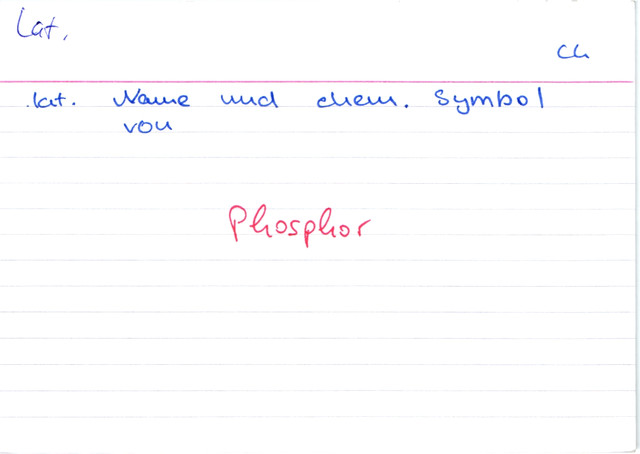 Lat.
Ch
lat. Name und chem. Symbol
von
Phosphor